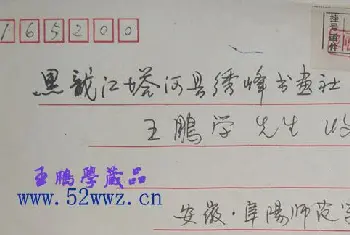 165200
黑龙江塔河县绣峰书画社
王鹏学先生收
王鵬學藏品
www.52wwz.cn
安徽·阜阳师范学